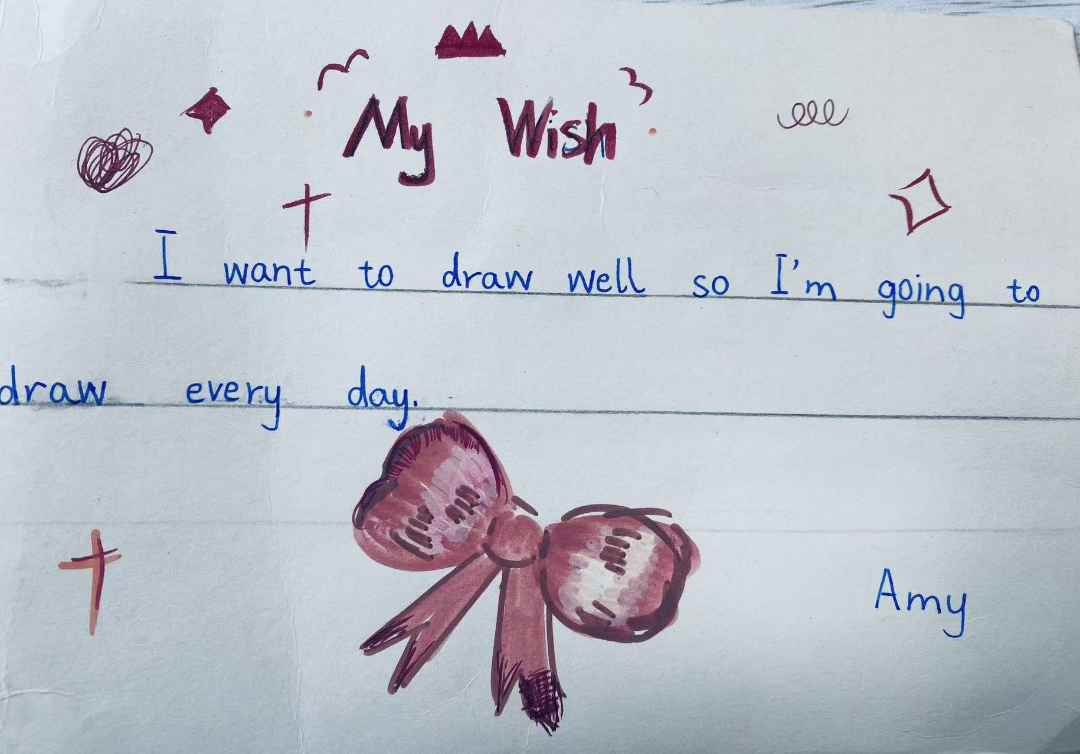 My Wish
I want to draw well so I'm going to
draw every day.
Amy